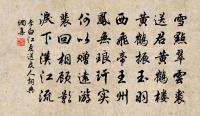 雪點翠雲裘
送君黃鶴樓
黃鶴振玉羽
西飛帝王州
鳳無琅玕實
何以贈遠游
裴回相顧影
淚下漢江流
李白江夏送友人詞典
網集